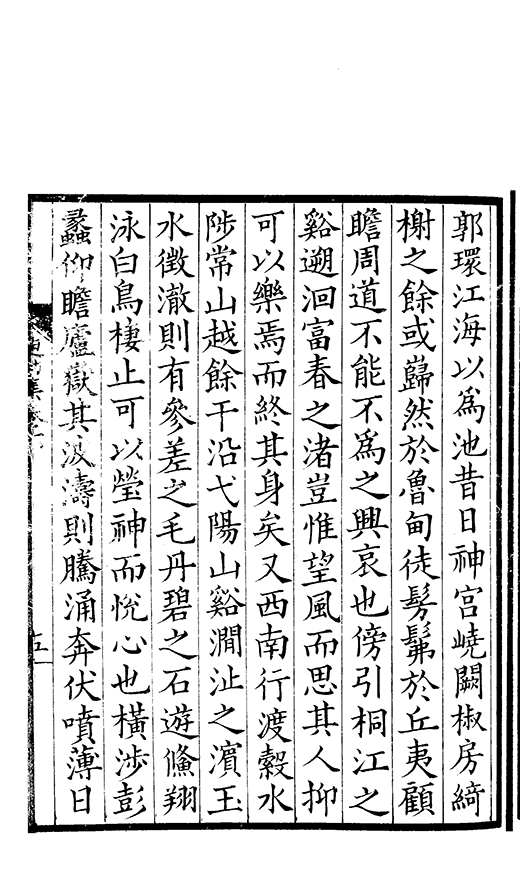 郭環江海以爲池昔日神宮嶢闕椒房綺
榭之餘或巋然於魯甸徒髣髴於丘夷顧
瞻周道不能不爲之興哀也傍引桐江之
谿遡洄富春之渚豈惟望風而思其人抑
可以樂焉而終其身矣又西南行渡縠水
陟常山越餘干沿弋陽山谿澗沚之濱玉
水徴澈則有參差之毛丹碧之石遊鯈翔
泳白鳥棲止可以瑩神而悅心也橫涉彭
蠡仰瞻廬嶽其波濤則騰涌奔伏噴薄日
五